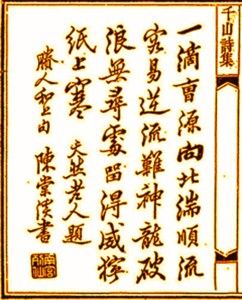 千山詩集
一滴曹源向北湍順流
容易逆流難神龍破
浪無尋處留得威獰
紙上寒 天然老人題
賸人和上 陳棠溪書